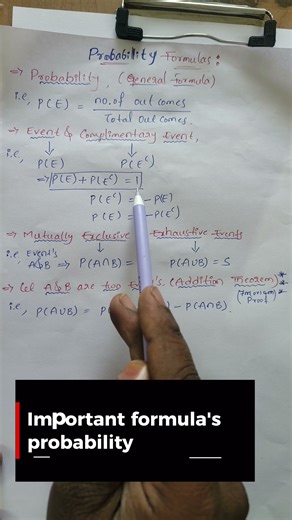 Probability Formulas:
⇒ Probability, (General formula)
i.e, P(E) = no. of outcomes / Total outcomes.
⇒ Event & Complimentary Event,
i.e, P(E) P(Eᶜ)
⇒ P(E) + P(Eᶜ) = 1
P(Eᶜ) = - P(E)
P(E) = - P(Eᶜ)
⇒ Mutually Exclusive Exhaustive Events
i.e Event's A&B ⇒ P(A∩B) = P(A∪B) = S
⇒ Let A&B are two 's. (Addition Theorem)**
i.e, P(A∪B) = - P(A∩B). Proof)*
Important formula's
probability